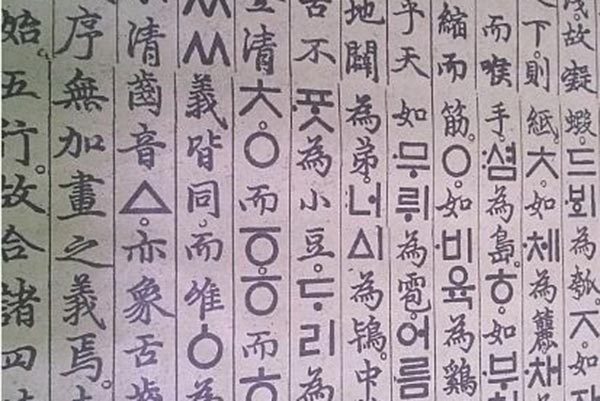 淺。故凝蝦。드ᄫᅴ為瓠。ㅈ。如
下。則紙。ㅊ。如체為簏。채
而喉手。셤為島。ㅎ。如부
縮而筋。ㅇ。如비육為鷄
乎天如무뤼為雹。어름
地闢為弟。너ᅀᅵ為鴇。中
舌不ᄑᆞᆺ為小豆。ᄃᆞ리為
清ㅊ。ㅇ而ㆆ。ㆆ而ㅎ
ㅅㅅ義皆同。而唯ㆁ為
清齒音ㅿ。亦象舌齒
序無加畫之義焉。
始。五行。故合諸四